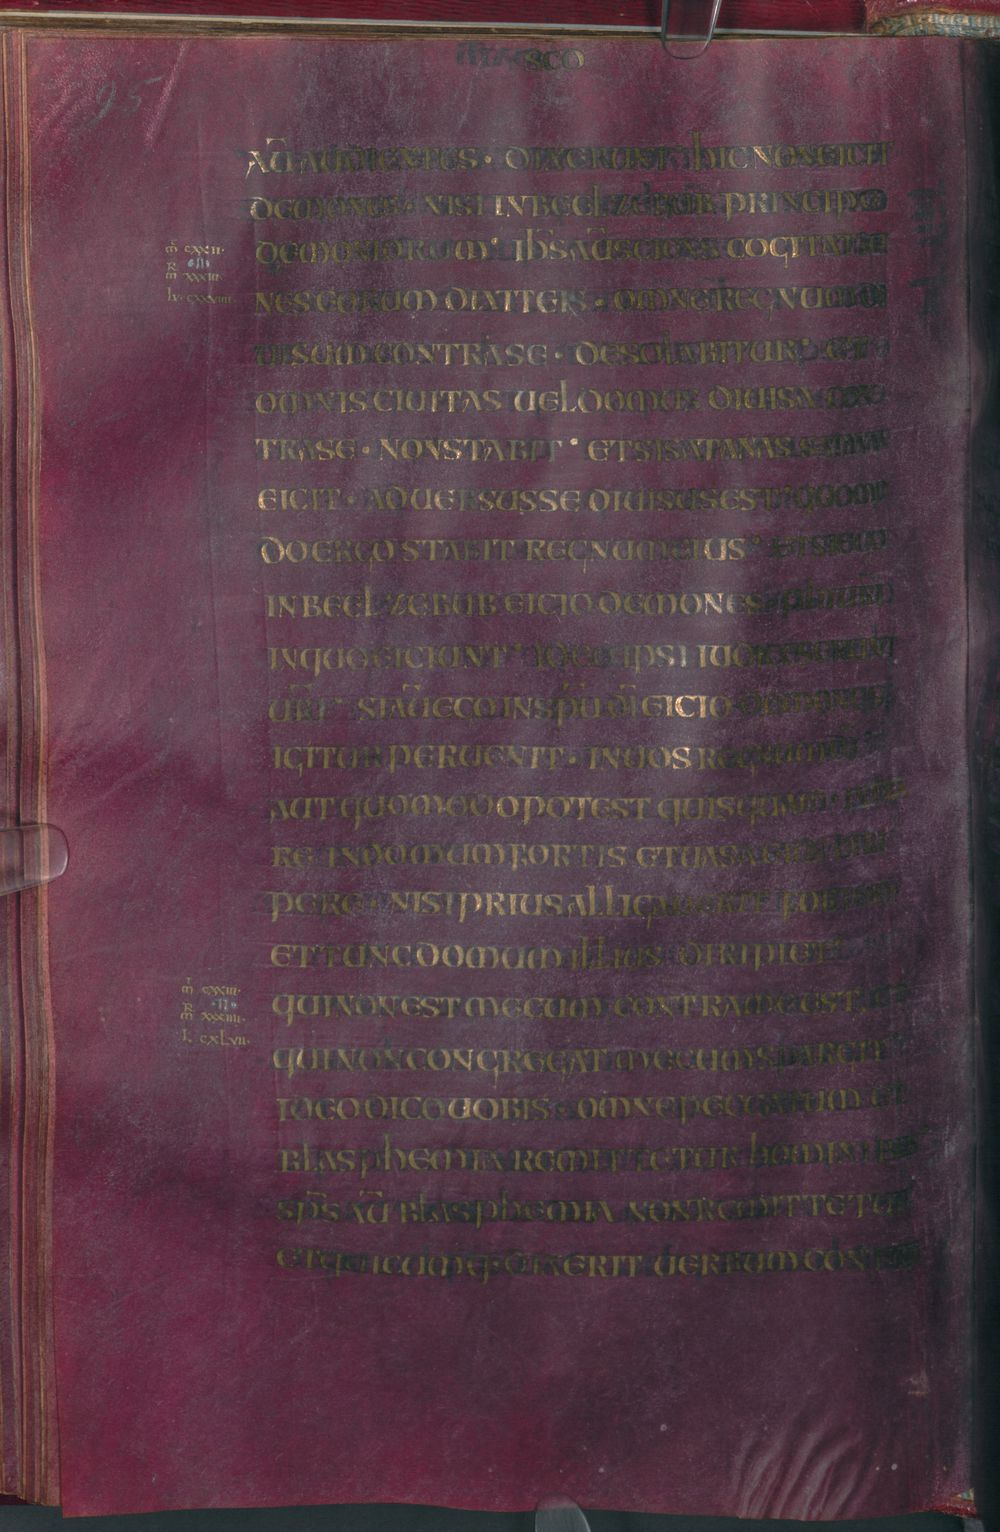 SCO
AŪ AUDIENTES · DIXERUNT · HIC NON EICIT
DEMONES · NISI IN BEELZEBUB PRINCIPE
DEMONIORUM · IHS AŪ SCIENS COGITATIO
NES EORUM DIXIT EIS · OMNE REGNUM DI
UISUM CONTRA SE · DESOLABITUR · ET
OMNIS CIUITAS UEL DOMUS DIUISA CON
TRA SE · NON STABIT · ET SI SATANAS SATANAN
EICIT · ADUERSUS SE DIUISUS EST · QUOMO
DO ERGO STABIT REGNUM EIUS · ET SI EGO
IN BEELZEBUB EICIO DEMONES · FILII UR̄I
IN QUO EICIUNT · IDEO IPSI IUDICES ERUNT
UR̄I · SI AŪ EGO IN SPŪ DĪ EICIO DEMONES
IGITUR PERUENIT · IN UOS REGNUM DĪ
AUT QUOMODO POTEST QUISQUAM · INTRA
RE IN DOMUM FORTIS ET UASA EIUS DIRI
PERE · NISI PRIUS ALLIGAUERIT FORTEM
ET TUNC DOMUM ILLIUS DIRIPIET
QUI NON EST MECUM CONTRA ME EST, ET
QUI NON CONGREGAT MECUM SPARGIT
IDEO DICO UOBIS · OMNE PECCATUM ET
BLASPHEMIA REMITTETUR HOMINIBUS
SPS AŪ BLASPHEMIA NON REMITTETUR
ET QUICUMQ· DIXERIT UERBUM CONTRA
M̄ CXXII·
R̄
M̄ XXXIII·
L̄V· CXXVIIII·
M̄ CXXIII·
R̄ ·II·
M̄ XXXIIII·
L̄ CXLVII·
95